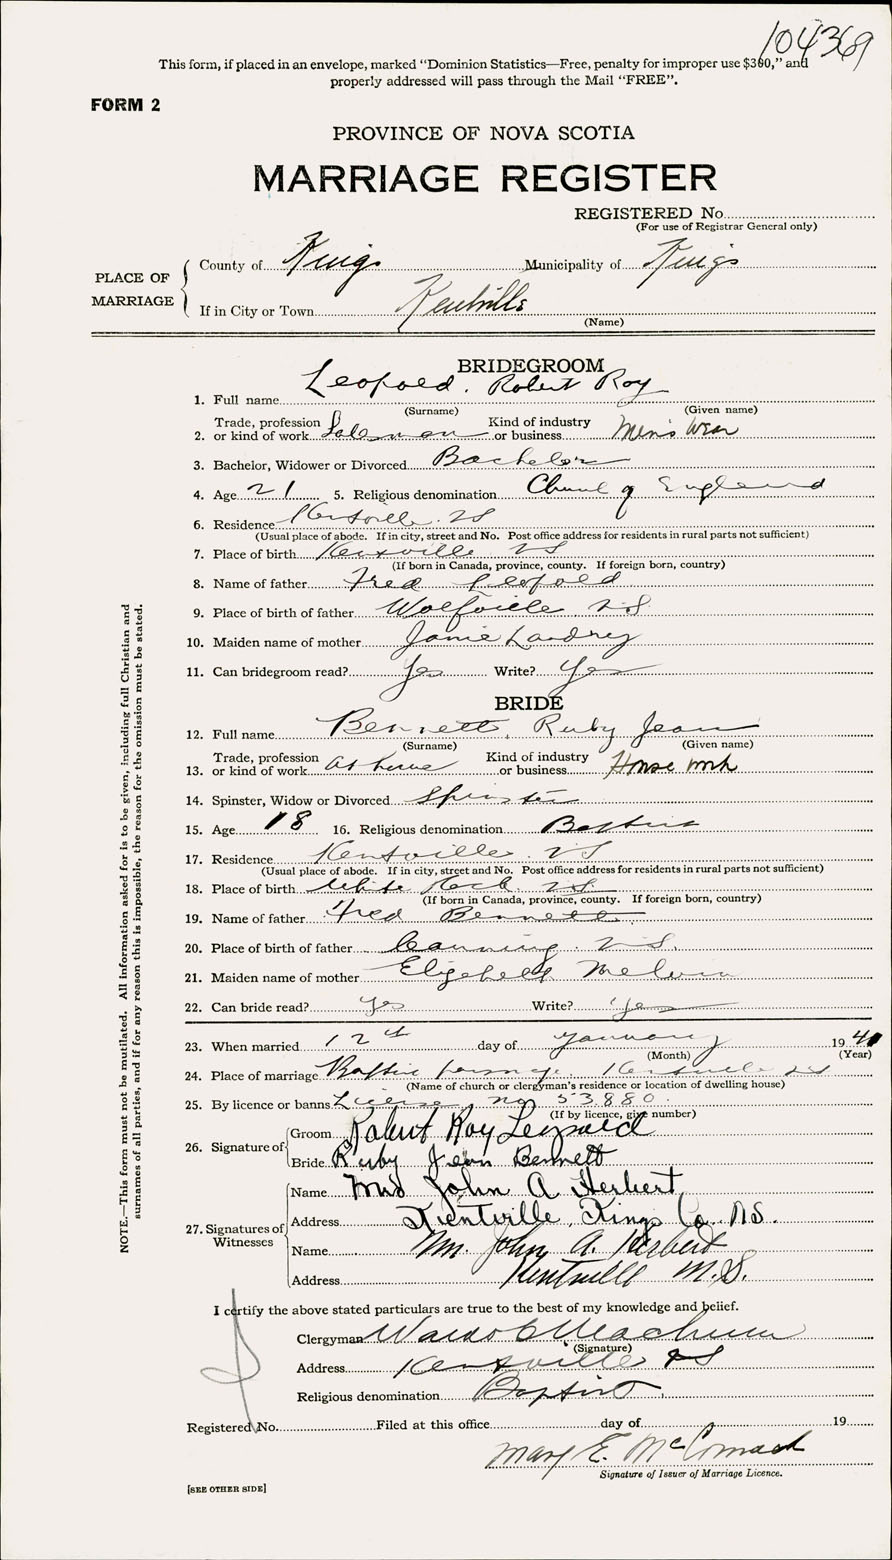 104369
This form, if placed in an envelope, marked “Dominion Statistics—Free, penalty for improper use $300,” and
properly addressed will pass through the Mail “FREE”.
FORM 2
PROVINCE OF NOVA SCOTIA
MARRIAGE REGISTER
REGISTERED No.
(For use of Registrar General only)
PLACE OF MARRIAGE
County of Kings Municipality of Kings
If in City or Town Kentville
(Name)
BRIDEGROOM
1. Full name Leopold. Robert Roy
(Surname) (Given name)
2. Trade, profession or kind of work Salesman Kind of industry or business Men's Wear
3. Bachelor, Widower or Divorced Bachelor
4. Age 21 5. Religious denomination Church of England
6. Residence Kentville. NS
(Usual place of abode. If in city, street and No. Post office address for residents in rural parts not sufficient)
7. Place of birth Kentville NS
(If born in Canada, province, county. If foreign born, country)
8. Name of father Fred Leopold
9. Place of birth of father Wolfville N.S.
10. Maiden name of mother Janie Landrey
11. Can bridegroom read? Yes Write? Yes
BRIDE
12. Full name Bennett, Ruby Jean
(Surname) (Given name)
13. Trade, profession or kind of work At home Kind of industry or business House work
14. Spinster, Widow or Divorced Spinster
15. Age 18 16. Religious denomination Baptist
17. Residence Kentville. NS
(Usual place of abode. If in city, street and No. Post office address for residents in rural parts not sufficient)
18. Place of birth White Rock NS
(If born in Canada, province, county. If foreign born, country)
19. Name of father Fred Bennett
20. Place of birth of father Canning. N.S.
21. Maiden name of mother Elizabeth Melvin
22. Can bride read? Yes Write? Yes
23. When married 12th day of January 19
(Month) (Year)
24. Place of marriage Baptist parsonage Kentville NS
(Name of church or clergyman's residence or location of dwelling house)
25. By licence or banns License no 53880.
(If by licence, give number)
26. Signature of
Groom Robert Roy Leopold
Bride Ruby Jean Bennett
27. Signatures of Witnesses
Name Mrs John A Herbert
Address Kentville, Kings Co. N.S.
Name Mr. John A. Herbert
Address Kentville N.S.
I certify the above stated particulars are true to the best of my knowledge and belief.
Clergyman
(Signature)
Address Kentville NS
Religious denomination Baptist
Registered No. Filed at this office day of 19
Mary E. McCormack
Signature of Issuer of Marriage Licence.
[SEE OTHER SIDE]
NOTE.—This form must not be mutilated. All information asked for is to be given, including full Christian and
surnames of all parties, and if for any reason this is impossible, the reason for the omission must be stated.